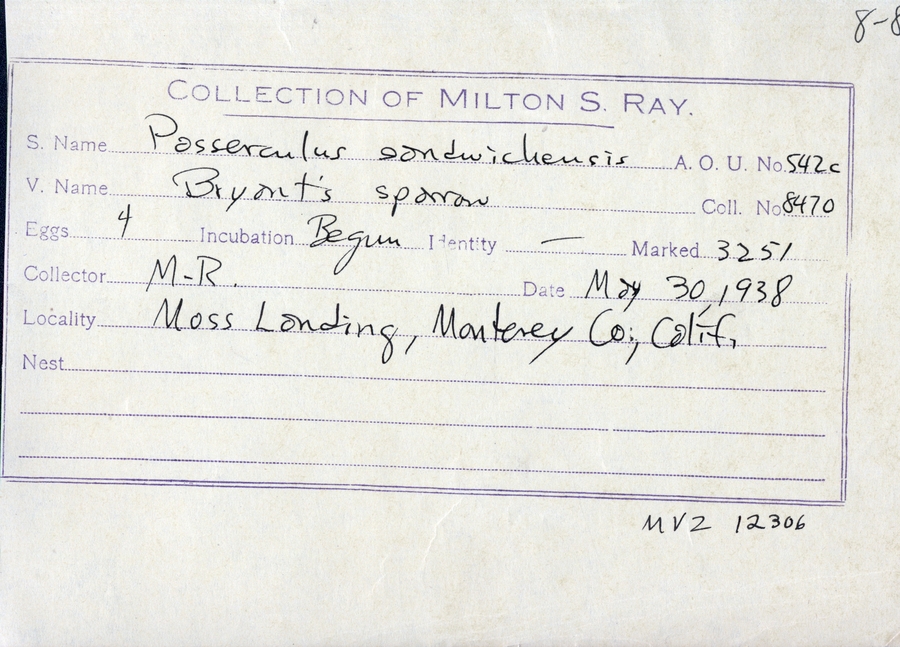 8-8
COLLECTION OF MILTON S. RAY.
S. Name Passerculus sandwichensis A. O. U. No. 542c
V. Name Bryant's sparrow Coll. No. 8470
Eggs 4 Incubation Begun Identity — Marked 3251
Collector M-R. Date May 30, 1938
Locality Moss Landing, Monterey Co., Calif.
Nest
MVZ 12306